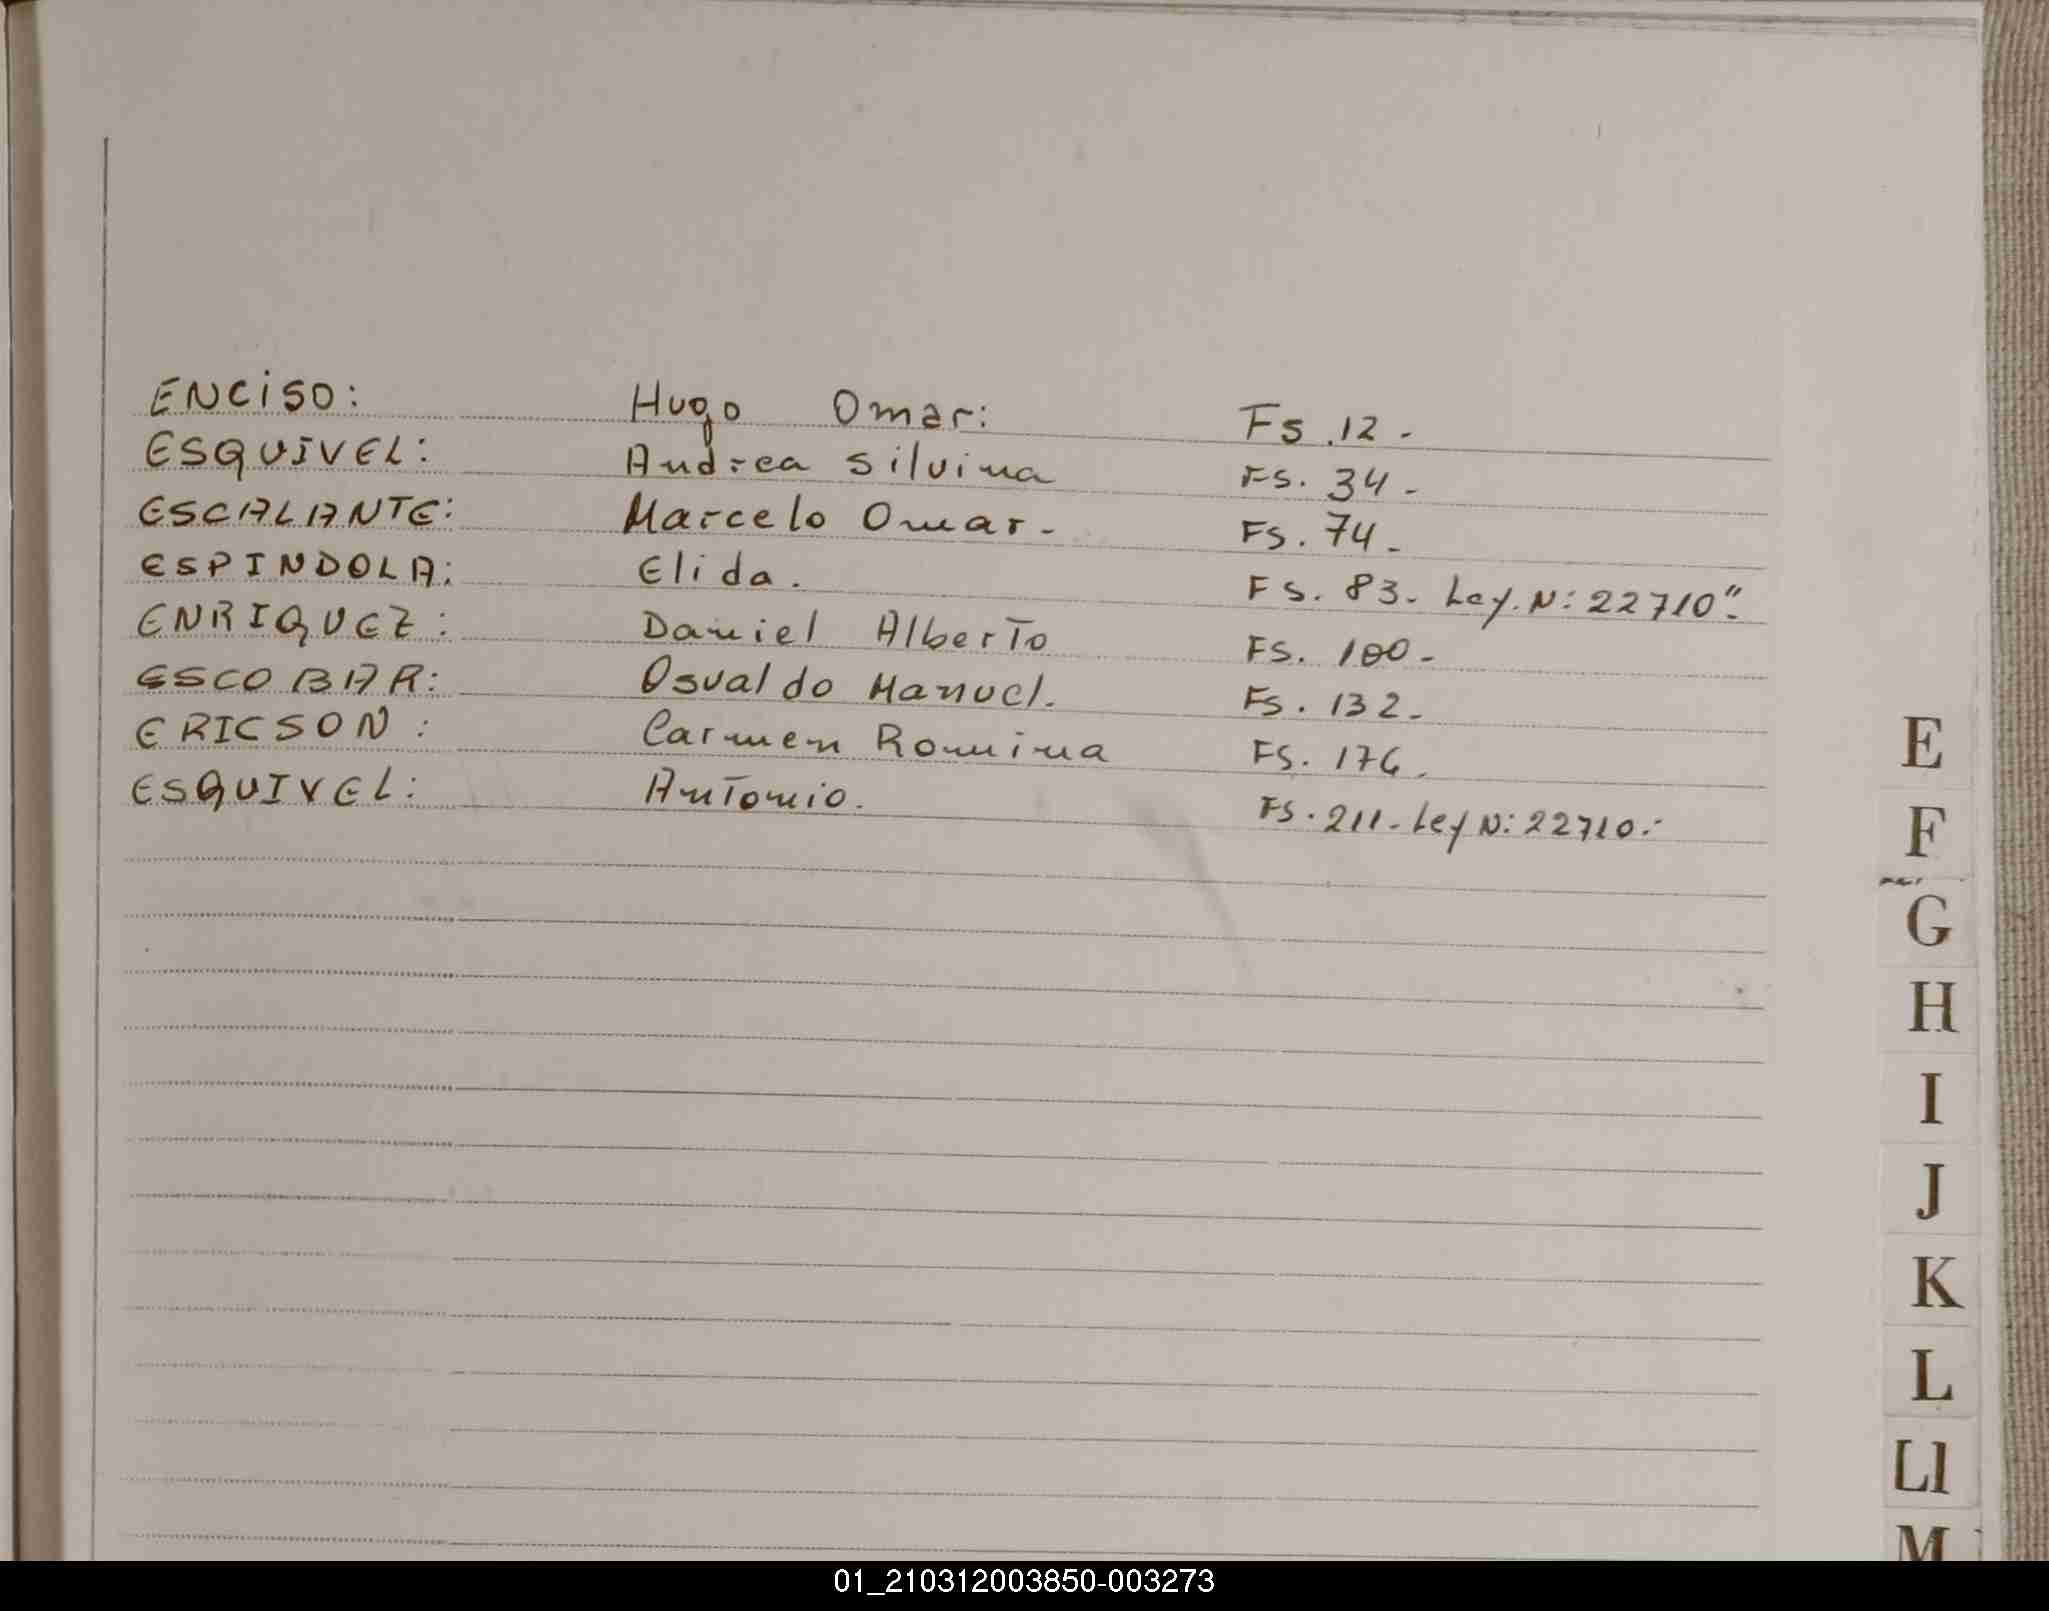 ENCISO: Hugo Omar: Fs. 12 -
ESQUIVEL: Andrea Silvina Fs. 34 -
ESCALANTE: Marcelo Omar - Fs. 74 -
ESPINDOLA: Elida. Fs. 83. Ley. N: 22710"-
ENRIQUEZ: Daniel Alberto Fs. 100 -
ESCOBAR: Osvaldo Manuel. Fs. 132 -
ERICSON: Carmen Romina Fs. 176.
ESQUIVEL: Antonio. Fs. 211 - Ley N: 22710.-
E
F
G
H
I
J
K
L
Ll
M
01_210312003850-003273